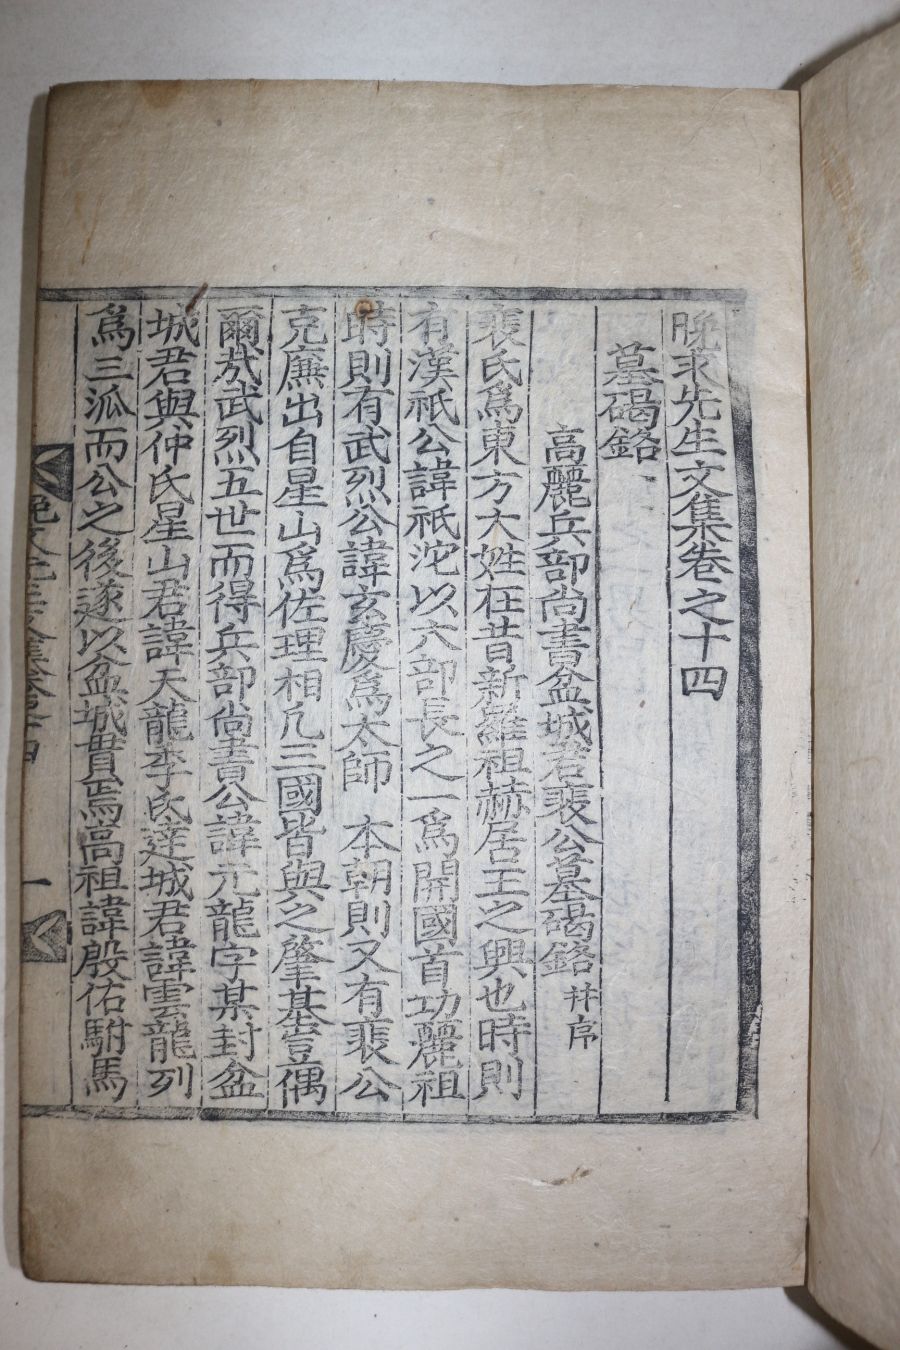 晩求先生文集卷之十四
墓碣銘
高麗兵部尙書盆城君裵公墓碣銘 幷序
裵氏爲東方大姓在昔新羅祖赫居王之興也時則
有漢祇公諱祇沱以六部長之一爲開國首功麗祖
時則有武烈公諱玄慶爲太師 本朝則又有裵公
克廉出自星山爲佐理相凡三國皆與之肇基豈偶
爾㢤武烈五世而得兵部尙書公諱元龍字某封盆
城君與仲氏星山君諱天龍季氏達城君諱雲龍列
爲三派而公之後遂以盆城貫焉高祖諱殷佑駙馬
晩求先生文集卷之十四
一